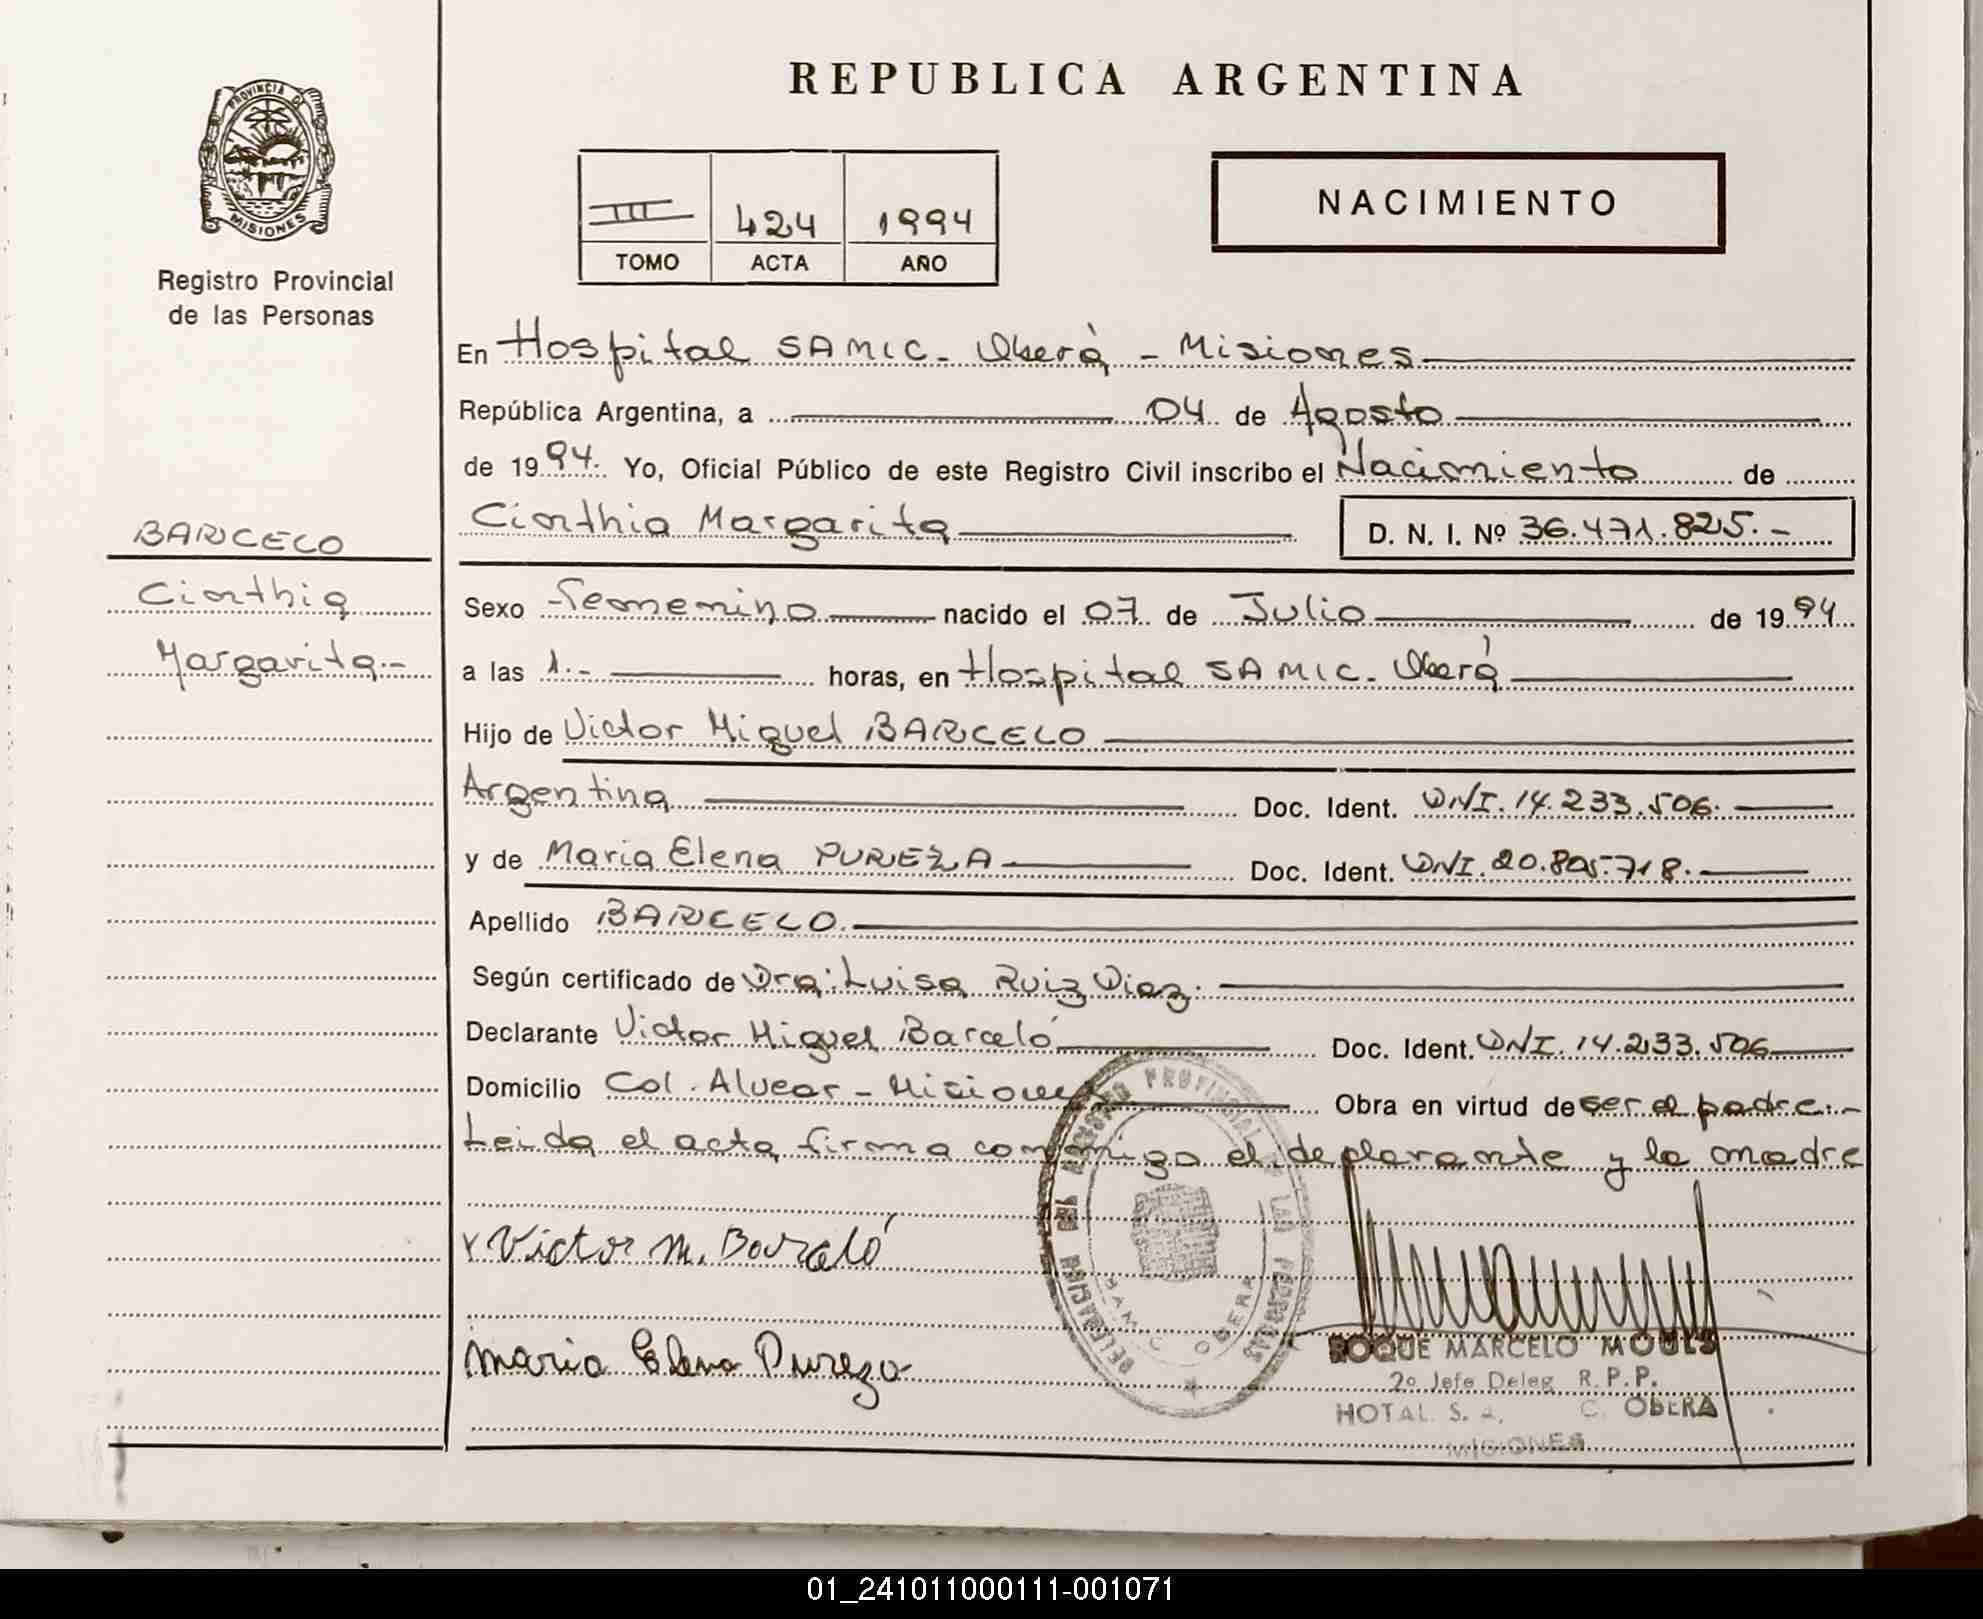 REPUBLICA ARGENTINA
PROVINCIA DE
MISIONES
Registro Provincial
de las Personas
III 424 1994
TOMO ACTA AÑO
NACIMIENTO
En Hospital SAMIC. Oberá - Misiones
República Argentina, a 04 de Agosto
de 1994. Yo, Oficial Público de este Registro Civil inscribo el Nacimiento de
Cinthia Margarita D. N. I. Nº 36.471.825.-
BARCELO
Cinthia
Margarita.-
Sexo Femenino nacido el 07 de Julio de 1994
a las 1.- horas, en Hospital SAMIC. Oberá
Hijo de Victor Miguel BARCELO
Argentina Doc. Ident. DNI. 14.233.506.
y de Maria Elena PUREZA Doc. Ident. DNI. 20.805.718.
Apellido BARCELO.
Según certificado de Dra: Luisa Ruiz Diaz.
Declarante Victor Miguel Barceló Doc. Ident. DNI. 14.233.506
Domicilio Col. Alvear - Misiones Obra en virtud de ser el padre.-
Leida el acta firma conmigo el declarante y la madre
Victor M. Barceló
Maria Elena Pureza
DELEGACION DEL REGISTRO PROVINCIAL DE LAS PERSONAS
SAMIC OBERA
ROQUE MARCELO
2º Jefe Deleg. R.P.P.
C. OBERA
MISIONES
01_241011000111-001071